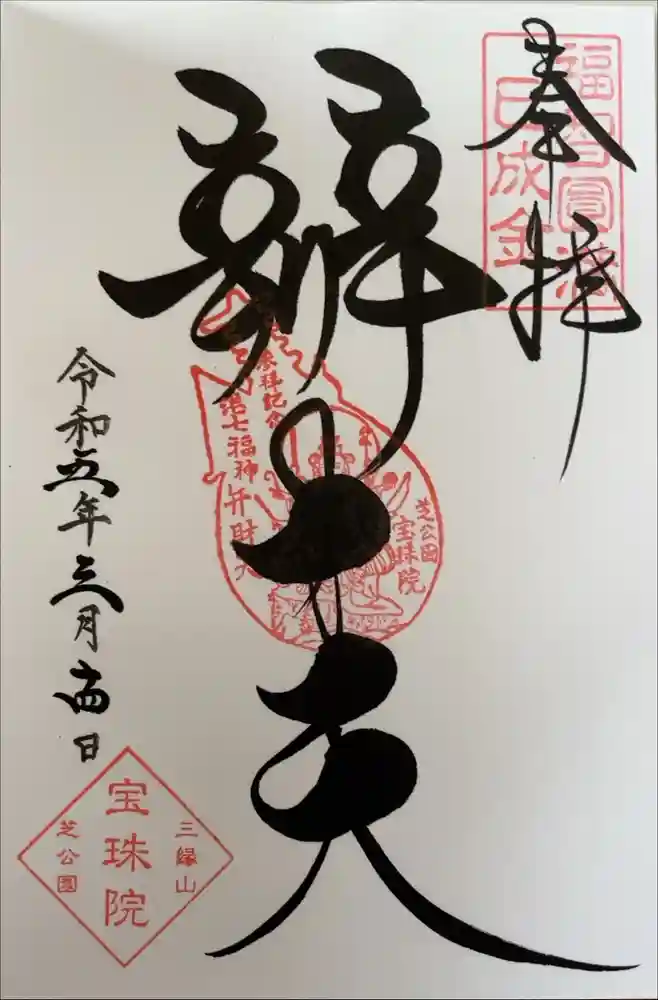 奉拝
福智圓満
巳成金
辨才天
参拝記念
七福神弁財天
芝公園
宝珠院
令和五年三月十四日
三縁山
宝珠院
芝公園